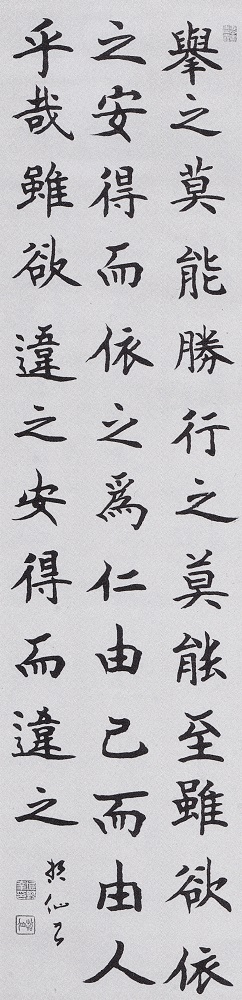 舉之莫能勝行之莫能至雖欲依
之安得而依之爲仁由己而由人
乎哉雖欲違之安得而違之